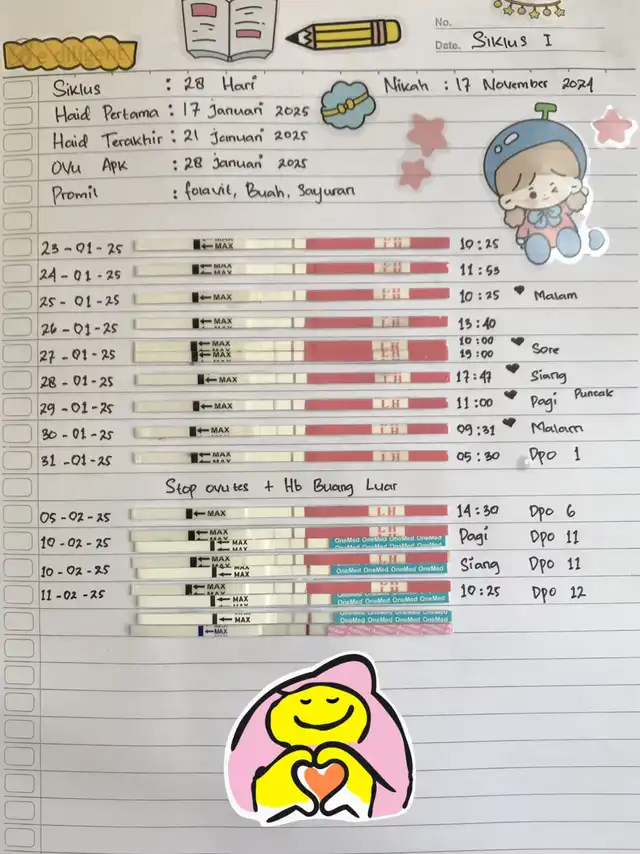 No.
Date. Siklus I
Siklus : 28 Hari Nikah : 17 November 2024
Haid Pertama : 17 januari 2025
Haid Terakhir : 21 januari 2025
OVU Apk : 28 januari 2025
Promil : folavit, Buah, Sayuran
23-01-25 MAX LH 10:25
24-01-25 MAX LH 11:53
25-01-25 MAX LH 10:25 Malam
26-01-25 MAX LH 13:40
10:00
27-01-25 MAX LH 19:00 Sore
28-01-25 MAX LH 17:47 Siang
29-01-25 MAX LH 11:00 Pagi Puncak
30-01-25 MAX LH 09:31 Malam
31-01-25 MAX LH 05:30 Dpo 1
Stop ovutes + Hb Buang Luar
05-02-25 MAX LH 14:30 Dpo 6
10-02-25 MAX LH Pagi Dpo 11
MAX OneMed OneMed OneMed OneMed
10-02-25 MAX LH Siang Dpo 11
MAX OneMed OneMed OneMed OneMed
11-02-25 MAX LH 10:25 Dpo 12
MAX OneMed OneMed OneMed OneMed
MAX OneMed OneMed OneMed OneMed
MAX